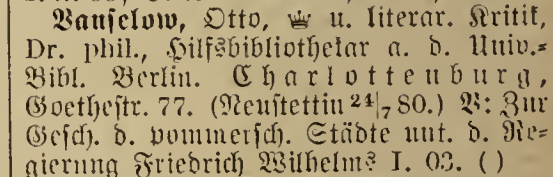 Vanselow, Otto, ♕ u. literar. Kritik,
Dr. phil., Hilfsbibliothekar a. d. Univ.=
Bibl. Berlin. Charlottenburg,
Goethestr. 77. (Neustettin 24/7 80.) V: Zur
Gesch. d. pommersch. Städte unt. d. Re=
gierung Friedrich Wilhelms I. 03. ( )